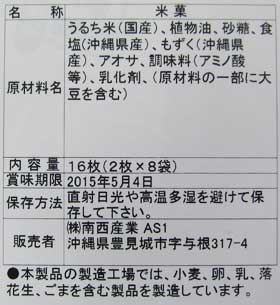 名 称 米菓
原材料名 うるち米(国産)、植物油、砂糖、食
塩(沖縄県産)、もずく(沖縄県
産)、アオサ、調味料(アミノ酸
等)、乳化剤、(原材料の一部に大
豆を含む)
内 容 量 16枚(2枚×8袋)
賞味期限 2015年5月4日
保存方法 直射日光や高温多湿を避けて保
存して下さい。
販売者 ㈱南西産業 AS1
沖縄県豊見城市字与根317-4
●本製品の製造工場では、小麦、卵、乳、落
花生、ごまを含む製品を製造しています。